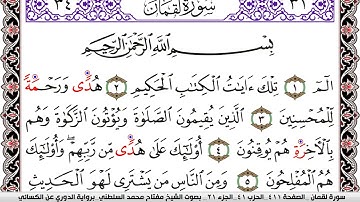 ٣٤ سُورَةُ لُقْمَانَ ٣١
بِسْمِ اللَّهِ الرَّحْمَٰنِ الرَّحِيمِ
الٓمٓ ١ تِلْكَ ءَايَٰتُ الْكِتَٰبِ الْحَكِيمِ ٢ هُدًى وَرَحْمَةً
لِّلْمُحْسِنِينَ ٣ الَّذِينَ يُقِيمُونَ الصَّلَوٰةَ وَيُؤْتُونَ الزَّكَوٰةَ وَهُم
بِالْآخِرَةِ هُمْ يُوقِنُونَ ٤ أُوْلَٰٓئِكَ عَلَىٰ هُدًى مِّن رَّبِّهِمْ وَأُوْلَٰٓئِكَ
هُمُ الْمُفْلِحُونَ ٥ وَمِنَ النَّاسِ مَن يَشْتَرِى لَهْوَ الْحَدِيثِ
سورة لقمان الصفحة ٤١١ الحزب ٤١ الجزء ٢١ بصوت الشيخ مفتاح محمد السلطني برواية الدوري عن الكسائي